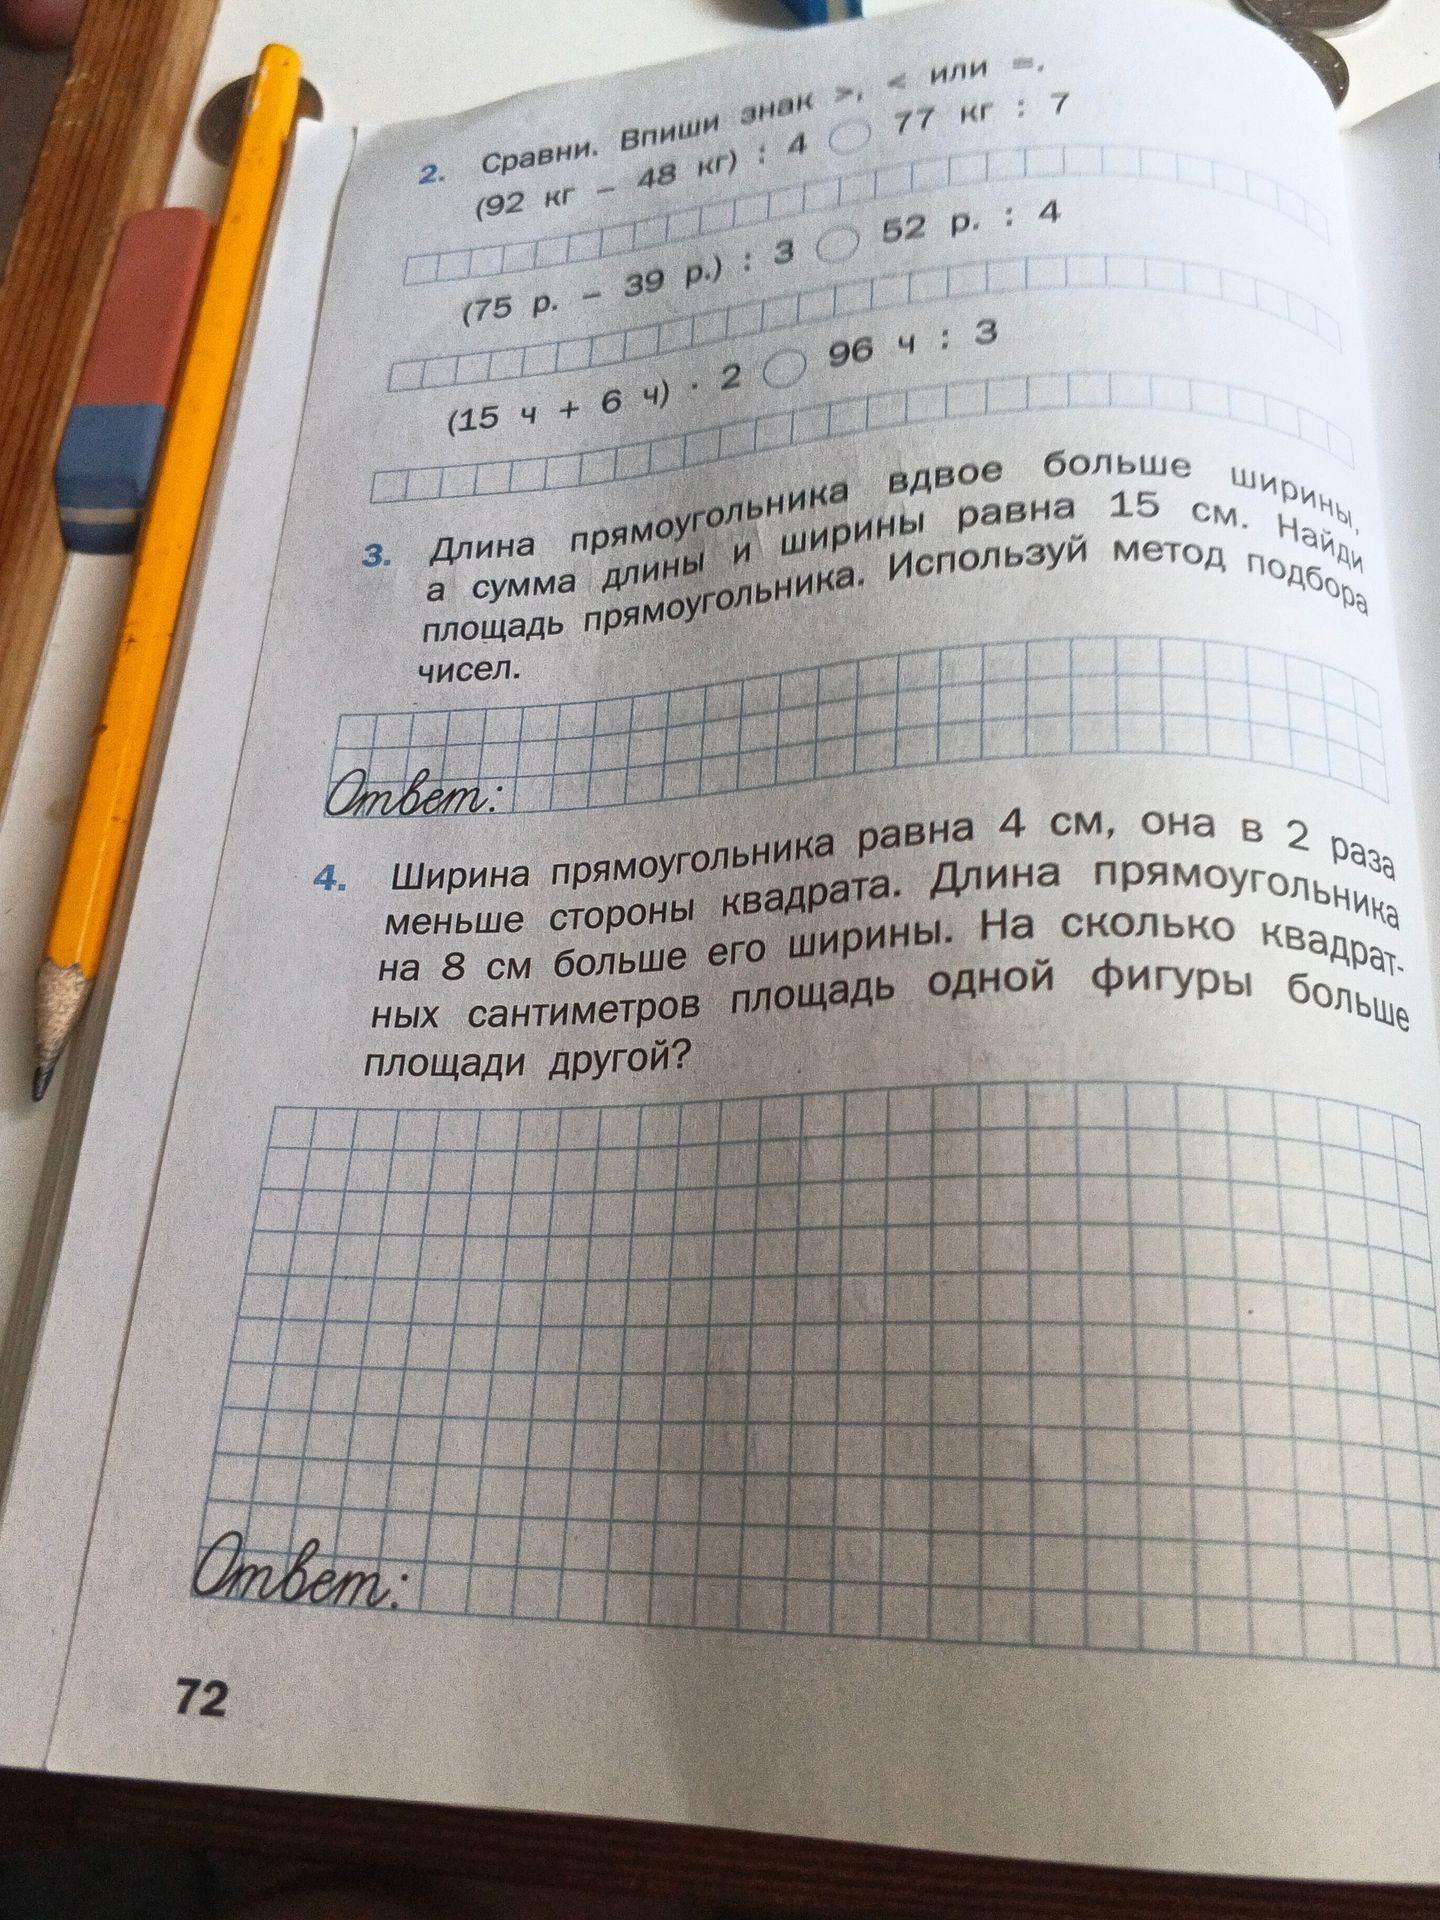 2. Сравни. Впиши знак >, < или =.
(92 кг – 48 кг) : 4 ◯ 77 кг : 7
(75 р. – 39 р.) : 3 ◯ 52 р. : 4
(15 ч + 6 ч) · 2 ◯ 96 ч : 3
3. Длина прямоугольника вдвое больше ширины,
а сумма длины и ширины равна 15 см. Найди
площадь прямоугольника. Используй метод подбора
чисел.
Ответ:
4. Ширина прямоугольника равна 4 см, она в 2 раза
меньше стороны квадрата. Длина прямоугольника
на 8 см больше его ширины. На сколько квадрат-
ных сантиметров площадь одной фигуры больше
площади другой?
Ответ:
72